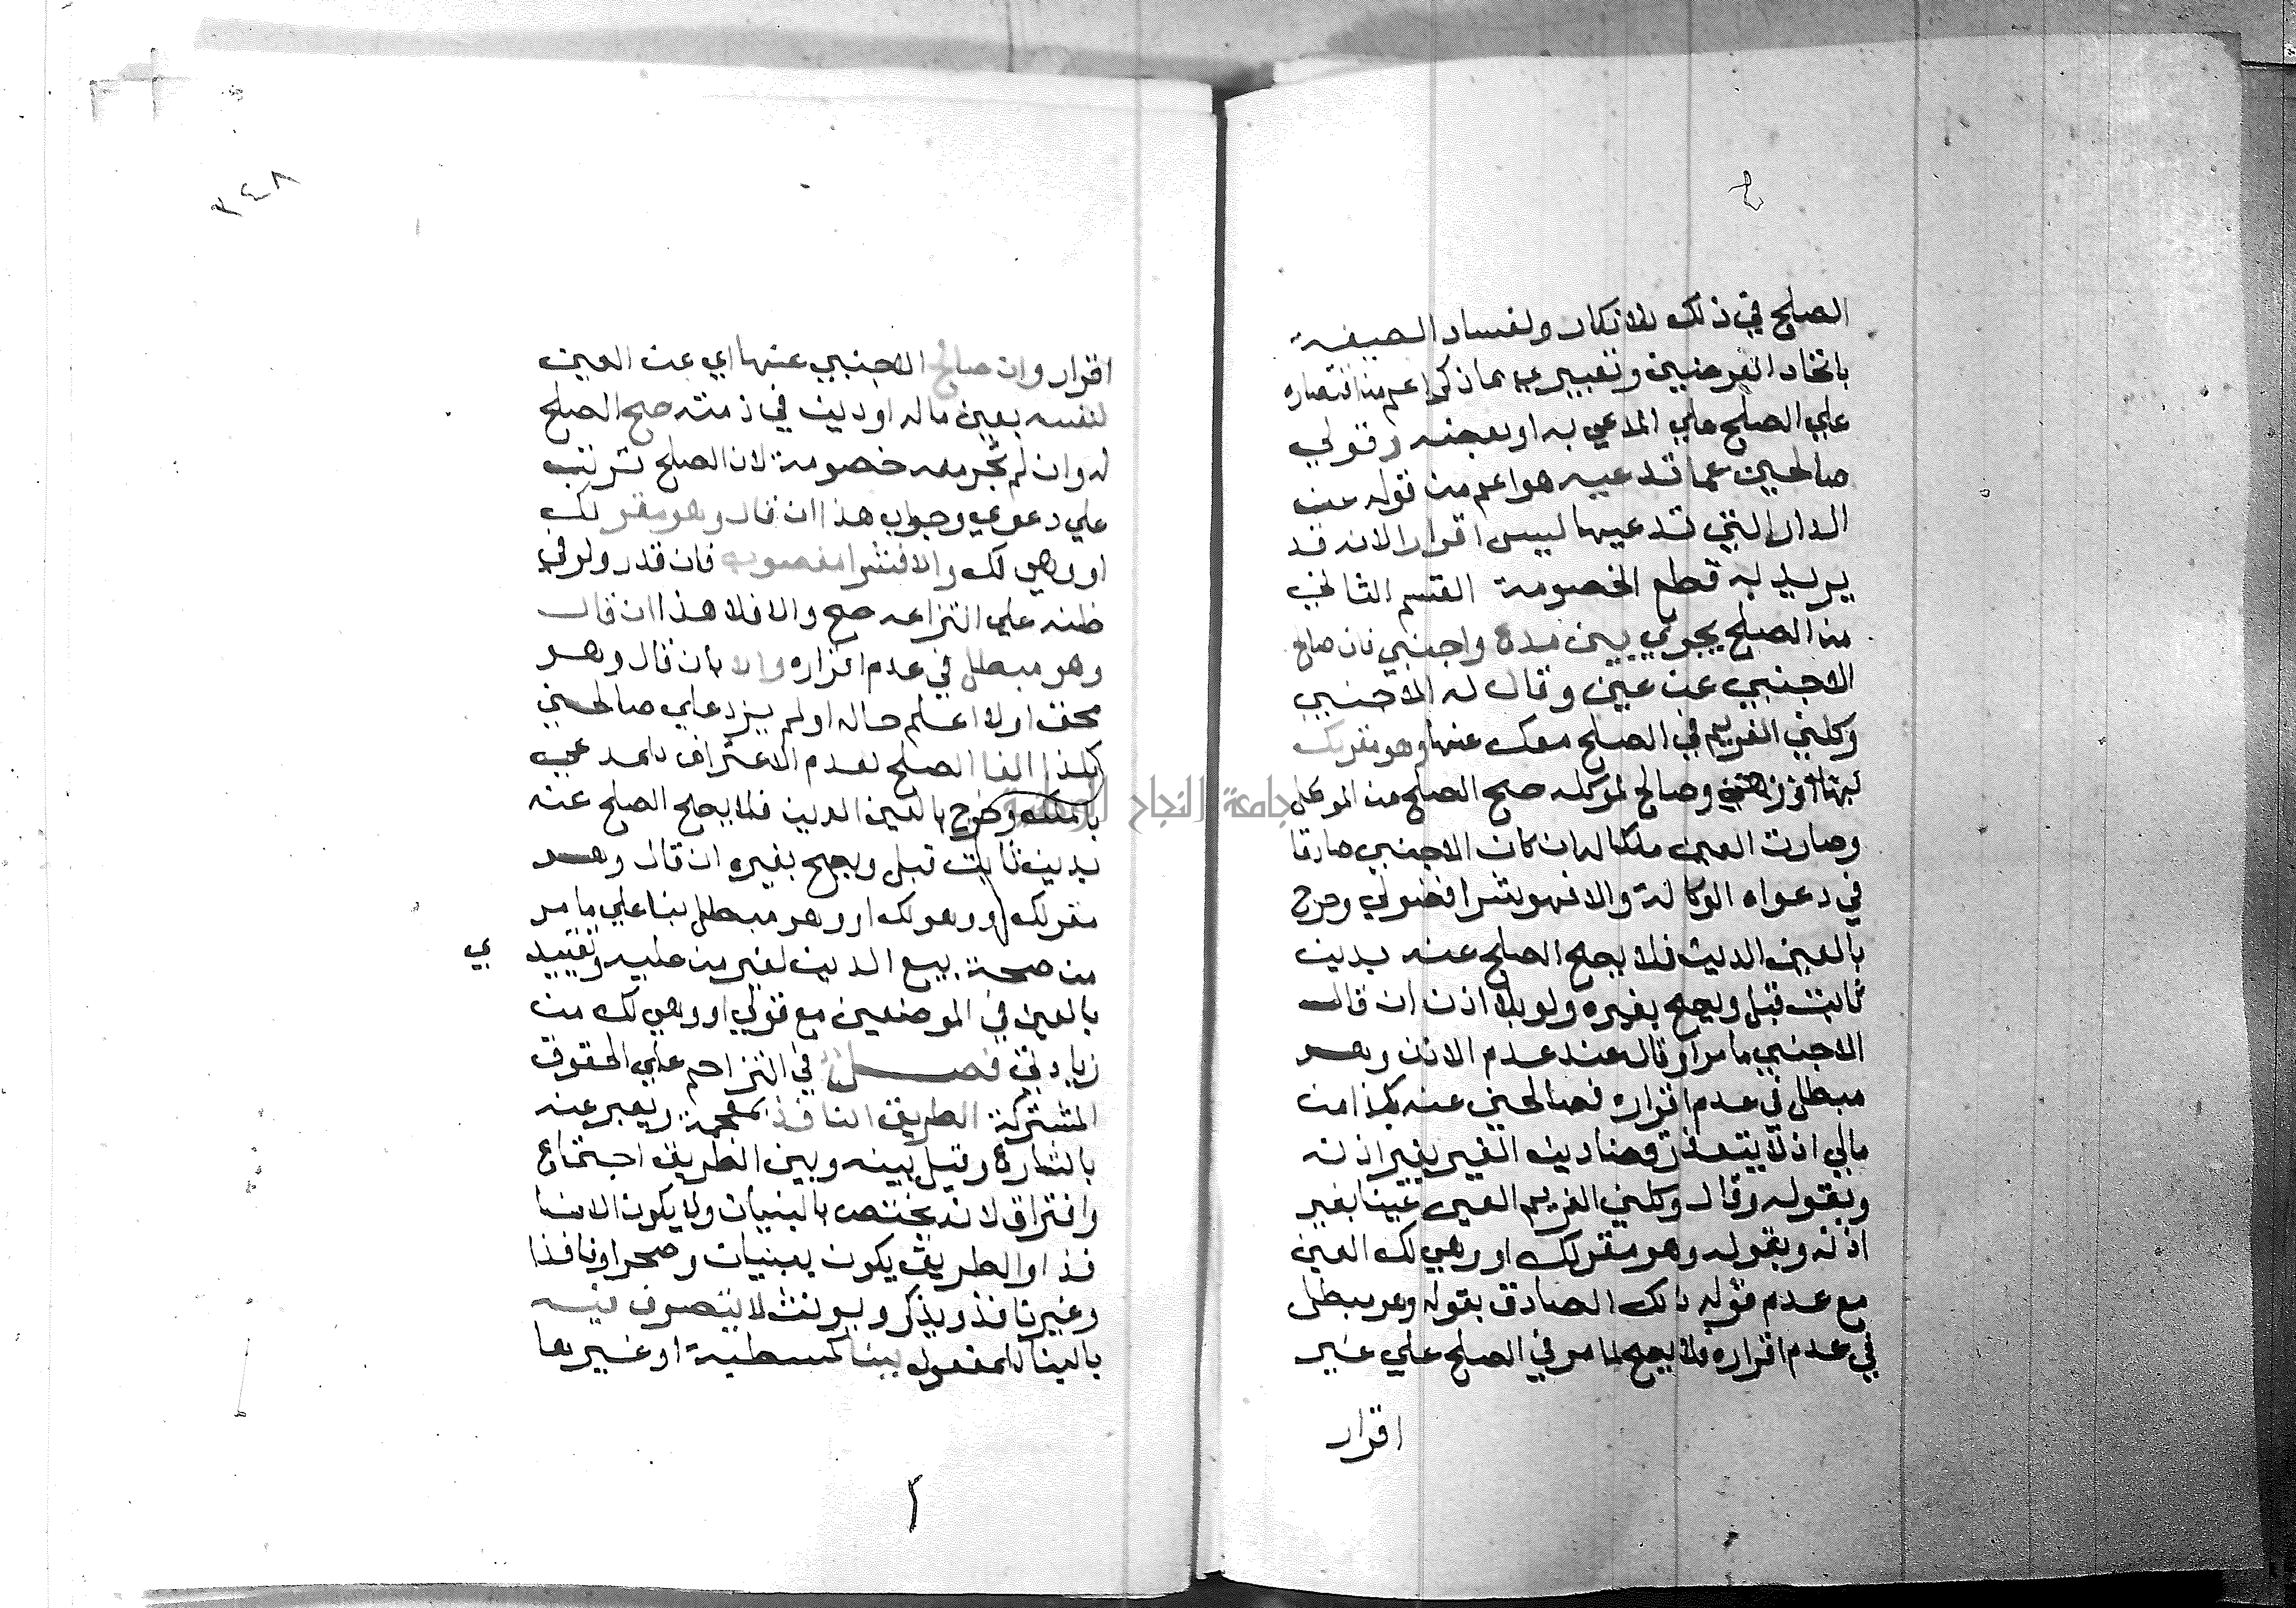 الصلح في ذلك للانكار ولفساد الصيغة
باتحاد العوضين وتعبيري بما ذكر اعم من اقتصاره
علي الصلح علي المدعي به او بعضه وقولي
صالحني عما تدعيه هو اعم من قوله عن
الدار التي تدعيها ليس اقرارا لانه قد
يريد به قطع الخصومة القسم الثاني
من الصلح يجري بين مدع واجنبي فان صالح
الاجنبي عن عين وقال له الاجنبي
وكلني الغريم في الصلح معك عنها وهو مقر لك
بها او وهي وصالح لموكله صح الصلح من الموكل
وصارت العين ملكا له ان كان الاجنبي صادقا
في دعواه الوكالة والا فهو شرا فضولي وخرج
بالعين الدين فلا يصح الصلح عنه بدين
ثابت قبل ويصح بغيره ولو بلا اذن ان قال
الاجنبي ما مر او قاله عند عدم الاذن وهو
مبطل في عدم اقراره فصالحني عنه بكذا من
مالي اذ لا يتعذر قضا دين الغير بغير اذنه
وبقوله وقال وكلني الغريم العين عينا بغير
اذنه وبقوله وهو مقر لك او وهي لك العين
مع عدم قوله ذلك الصادق بقوله وهو مبطل
في عدم اقراره فلا يصح لما مر في الصلح علي غير
اقرار
٣٤٨
اقرار وان صالح الاجنبي عنها اي عن العين
لنفسه بعين ماله او دين في ذمته صح الصلح
له وان لم تجر معه خصومة لان الصلح ترتب
علي دعوي وجواب هذا ان قال وهو مقر لك
او وهي لك والا فشرا مغصوب فان قدر ولو في
ظنه علي انتزاعه صح والا فلا هذا ان قال
وهو مبطل في عدم اقراره والا بان قال وهو
محق او لا اعلم حاله او لم يزد علي صالحني
بكذا لغا الصلح لعدم الاعتراف للمدعي
بالملك وخرج بالعين الدين فلا يصح الصلح عنه
بدين ثابت قبل ويصح بغيره ان قال وهو
مقر لك او وهو لك او وهو مبطل بنا علي ما مر
من صحة بيع الدين لغير من عليه وتقييدي
بالعين في الموضعين مع قولي او وهي لك من
زيادتي فصل في التزاحم علي الحقوق
المشتركة الطريق النافذ بمعجمة ويعبر عنه
بالشارع وقيل بينه وبين الطريق اجتماع
وافتراق لانه يختص بالبنيان ولا يكون الا نا
فذا والطريق يكون ببنيان وصحرا ونافذا
وغير نافذ ويذكر ويونث لا يتصرف فيه
بالبنا للمفعول ببنا كمسطبة او غيرها
جامعة النجاح الوطنية